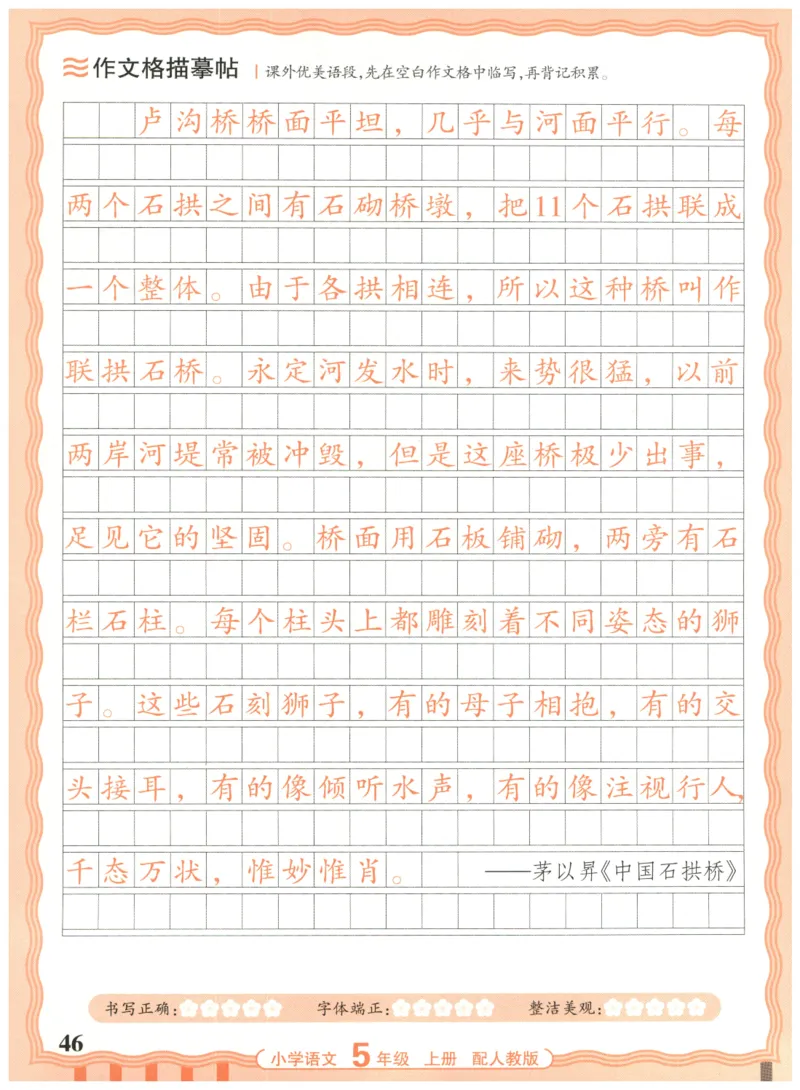 作文格描摹帖 | 课外优美语段,先在空白作文格中临写,再背记积累。
卢沟桥桥面平坦，几乎与河面平行。每
两个石拱之间有石砌桥墩，把11个石拱联成
一个整体。由于各拱相连，所以这种桥叫作
联拱石桥。永定河发水时，来势很猛，以前
两岸河堤常被冲毁，但是这座桥极少出事，
足见它的坚固。桥面用石板铺砌，两旁有石
栏石柱。每个柱头上都雕刻着不同姿态的狮
子。这些石刻狮子，有的母子相抱，有的交
头接耳，有的像倾听水声，有的像注视行人，
千态万状，惟妙惟肖。
——茅以昇《中国石拱桥》
书写正确: 字体端正: 整洁美观:
46
小学语文 5年级 上册 配人教版